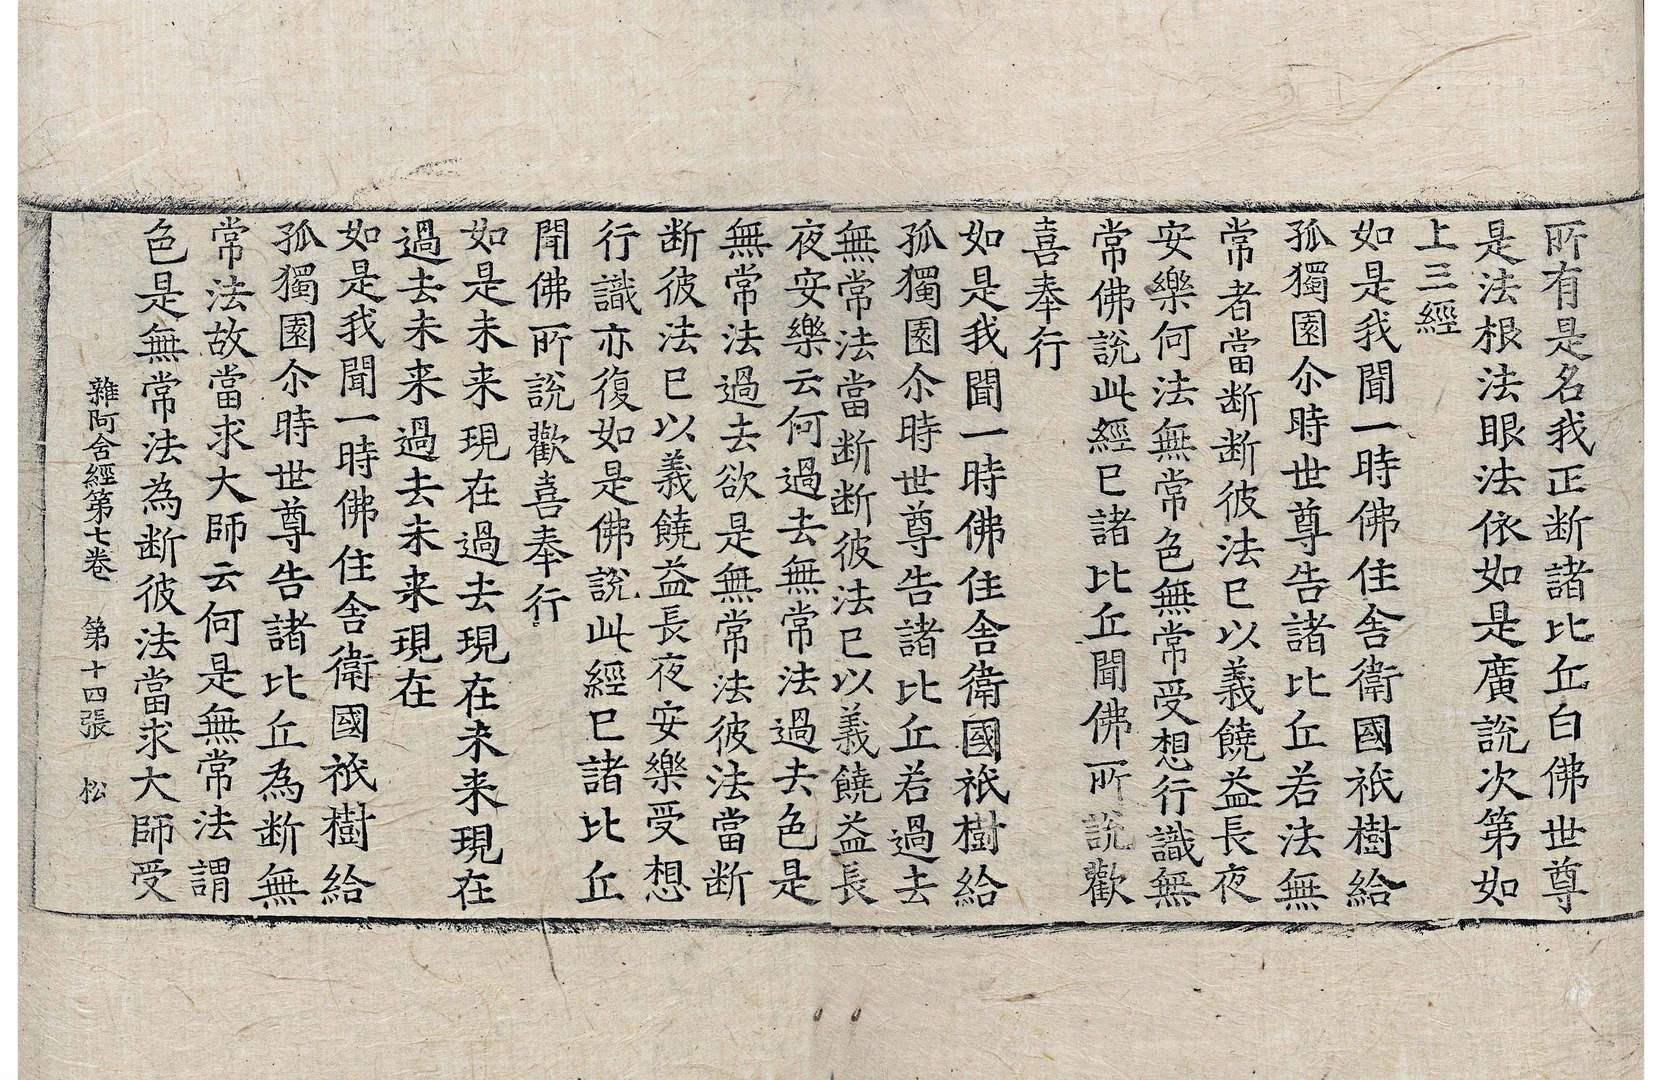 所有是名我正断諸比丘白佛世尊
是法根法眼法依如是廣說次第如
上三經
如是我聞一時佛住舎衛國祇樹給
孤獨園尒時世尊告諸比丘若法無
常者當断断彼法已以義饒益長夜
安樂何法無常色無常受想行識無
常佛說此經已諸比丘聞佛所說歡
喜奉行
如是我聞一時佛住舎衛國祇樹給
孤獨園尒時世尊告諸比丘若過去
無常法當断断彼法已以義饒益長
夜安樂云何過去無常法過去色是
無常法過去欲是無常法彼法當断
断彼法已以義饒益長夜安樂受想
行識亦復如是佛說此經已諸比丘
聞佛所說歡喜奉行
如是未来現在過去現在未来現在
過去未来過去未来現在
如是我聞一時佛住舎衛國祇樹給
孤獨園尒時世尊告諸比丘為断無
常法故當求大師云何是無常法謂
色是無常法為断彼法當求大師受
雜阿含經第七卷 第十四張 松